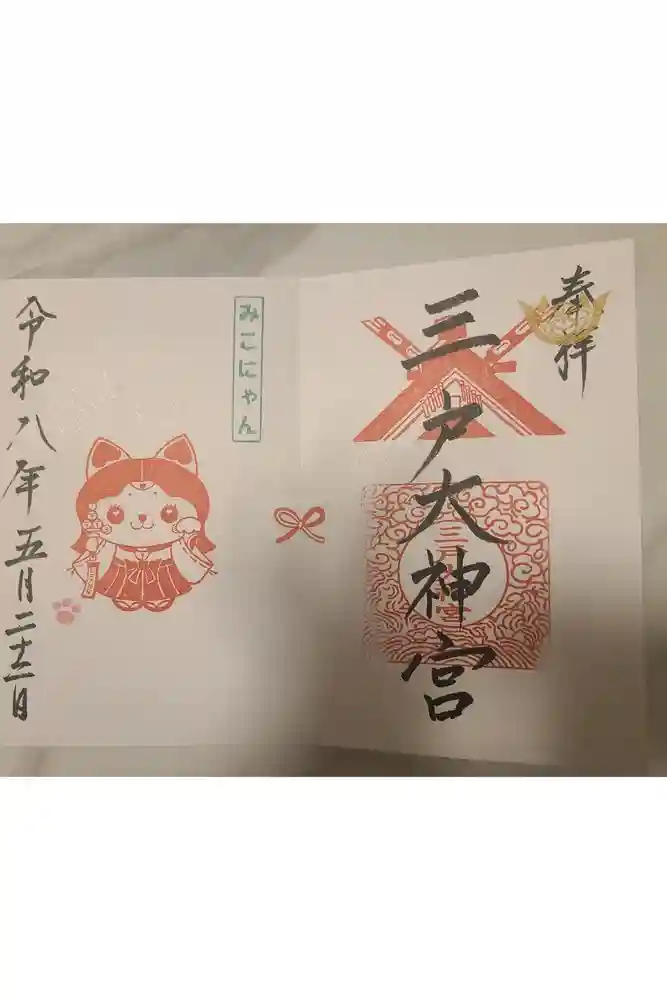 奉拝
三戸大神宮
みこにゃん
令和八年五月二十二日